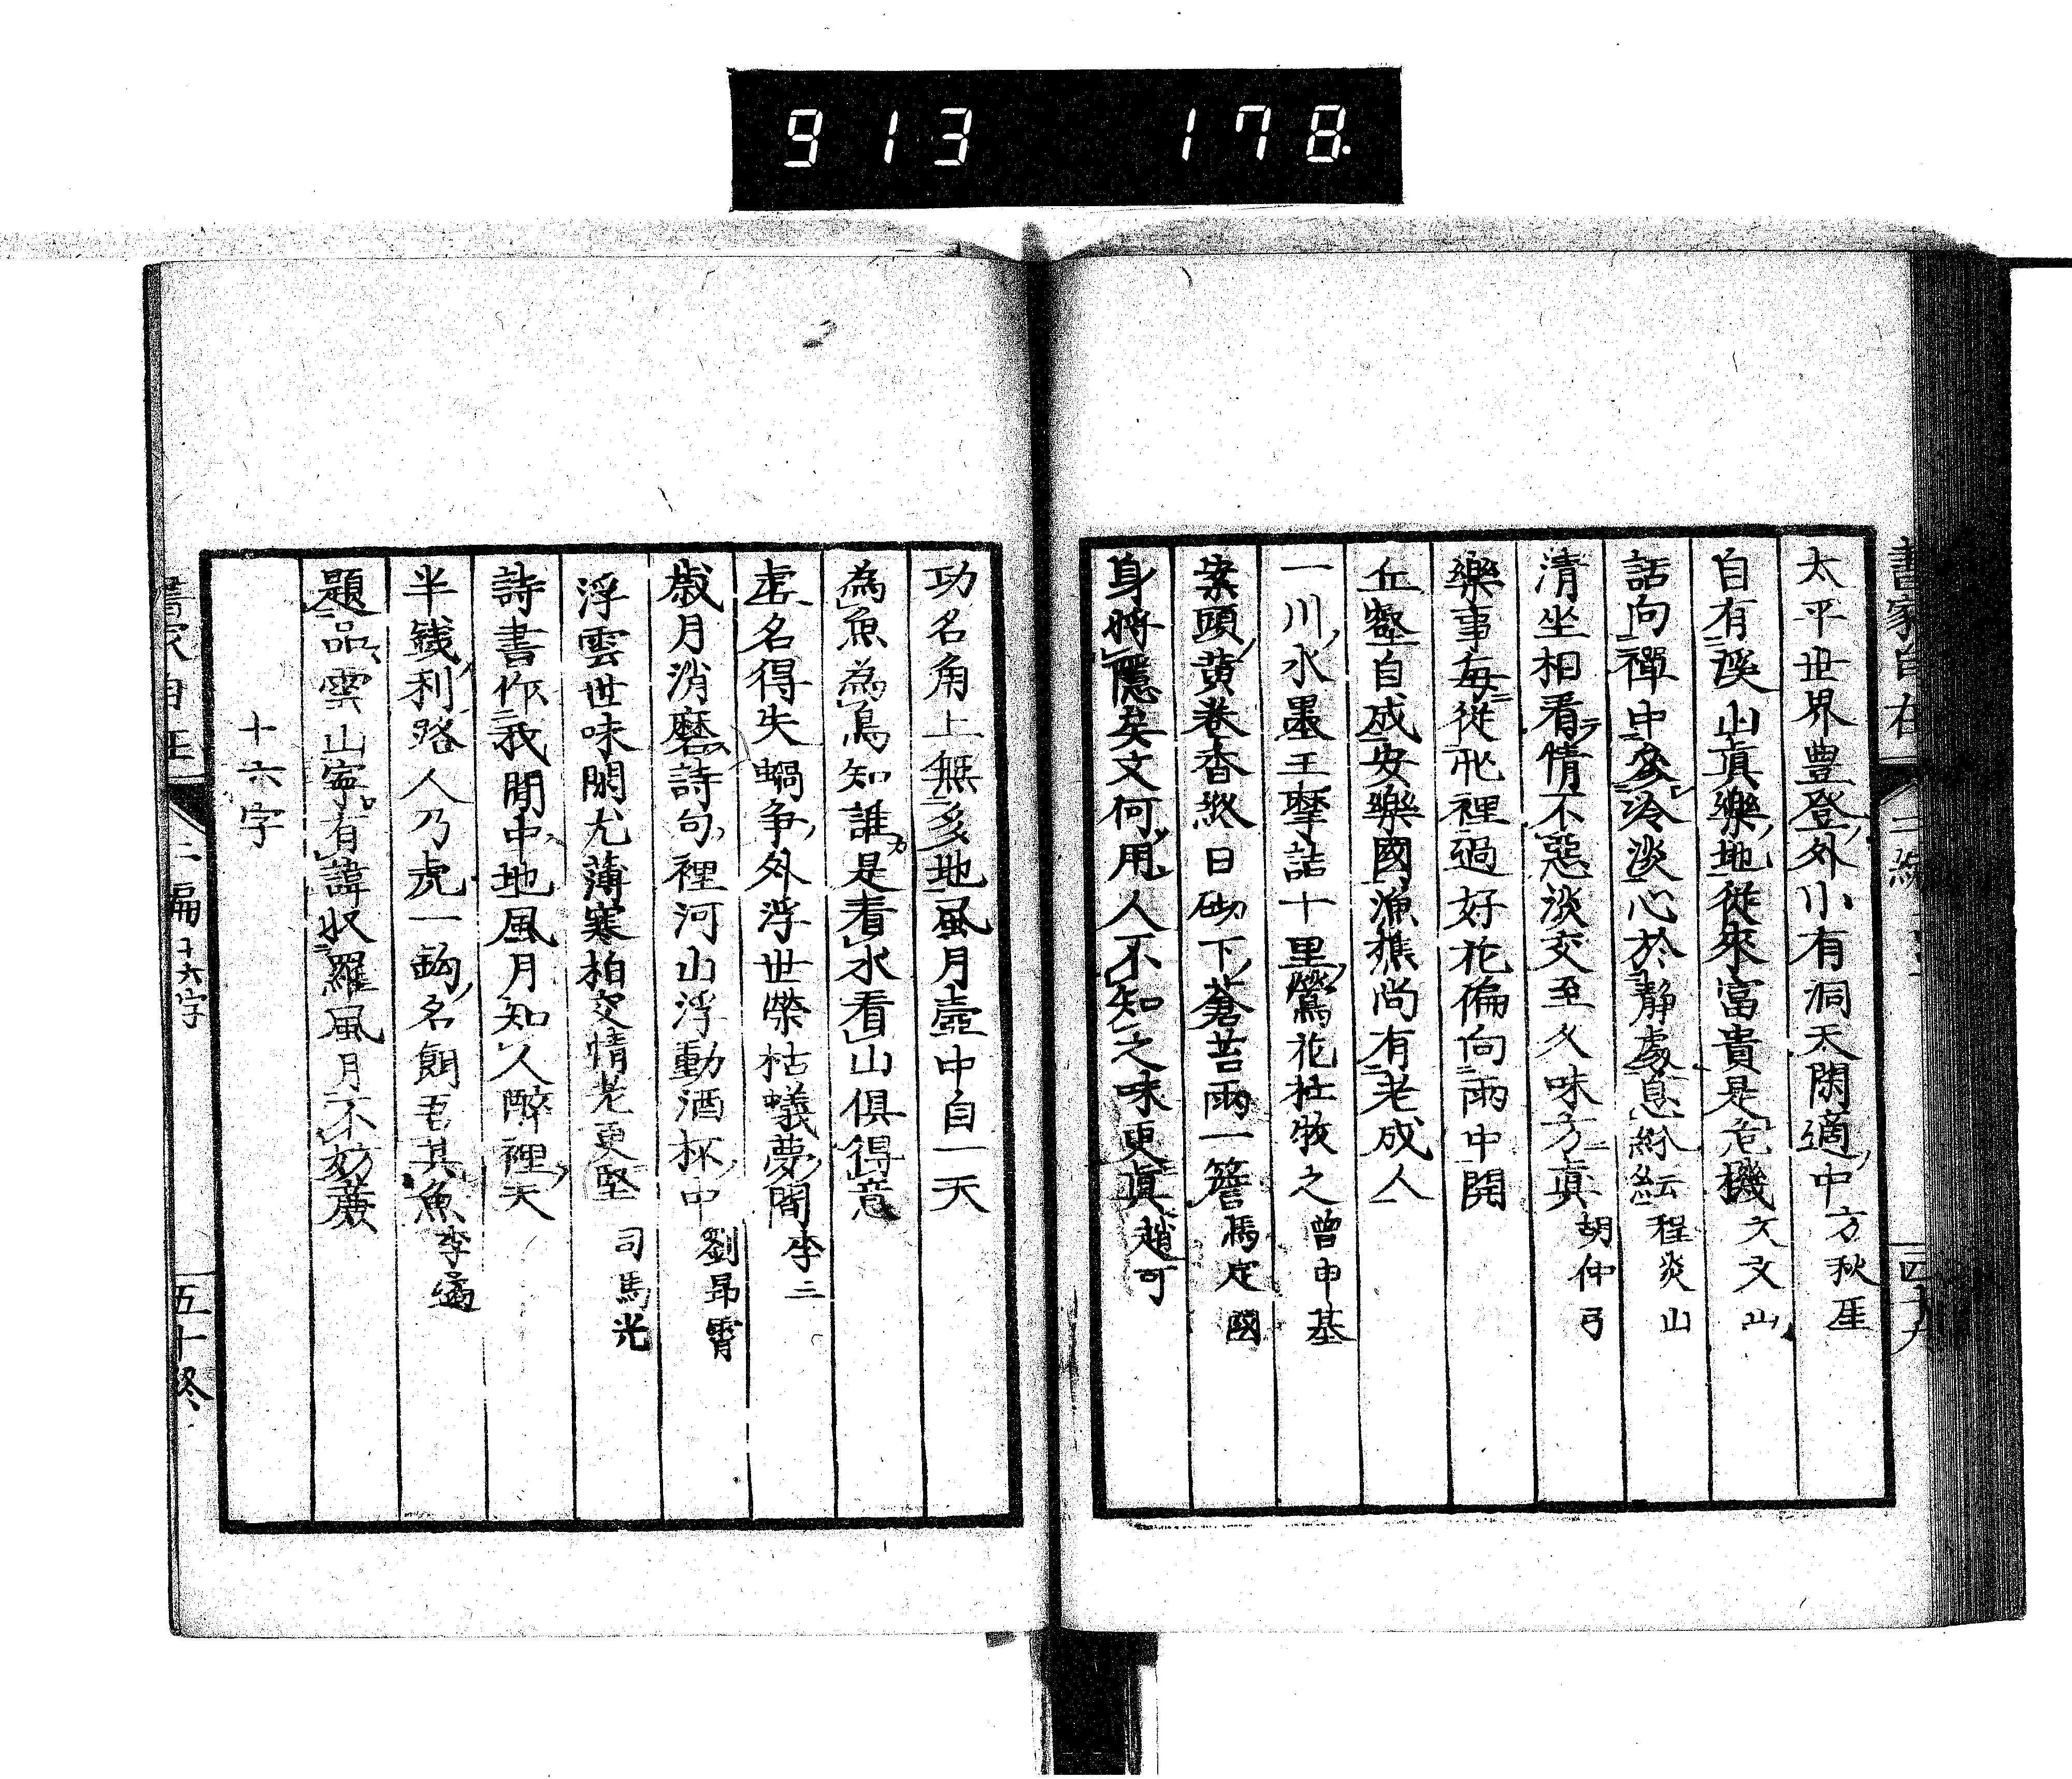 913 178
太平世界豊登外小有洞天閑適中 方秋厓
自有溪山眞樂地從來富貴是危機 文文山
話向禪中多冷淡心於靜處息紛紜 程炎山
清坐相看情不惡淡交至久味方眞 胡仲弓
樂事每從忙裡過好花偏向雨中開
丘壑自成安樂國漁樵尚有老成人
一川水墨王摩詰十里鶯花杜牧之 曾申基
案頭黄卷香終日砌下蒼苔雨一簷 馮定國
身將隱矣文何用人不知之味更眞 趙可
功名角上無多地風月壺中自一天
為魚為鳥知誰是看水看山俱得意
虚名得失蝸争外浮世榮枯蟻夢間 李二
歳月消磨詩句裡河山浮動酒杯中 劉昂霄
浮雲世味閑尤薄寒柏交情老更堅 司馬光
詩書作我閒中地風月知人醉裡天
半錢利路人乃虎一鈎名餌吾其魚 李𤅢
題品雲山寧有諱收羅風月不妨廉
十六字
書家自在
二編 十六字
五十終